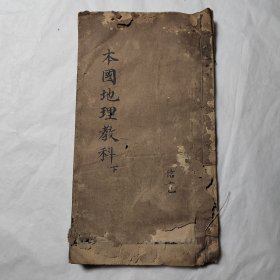 本國地理教科下